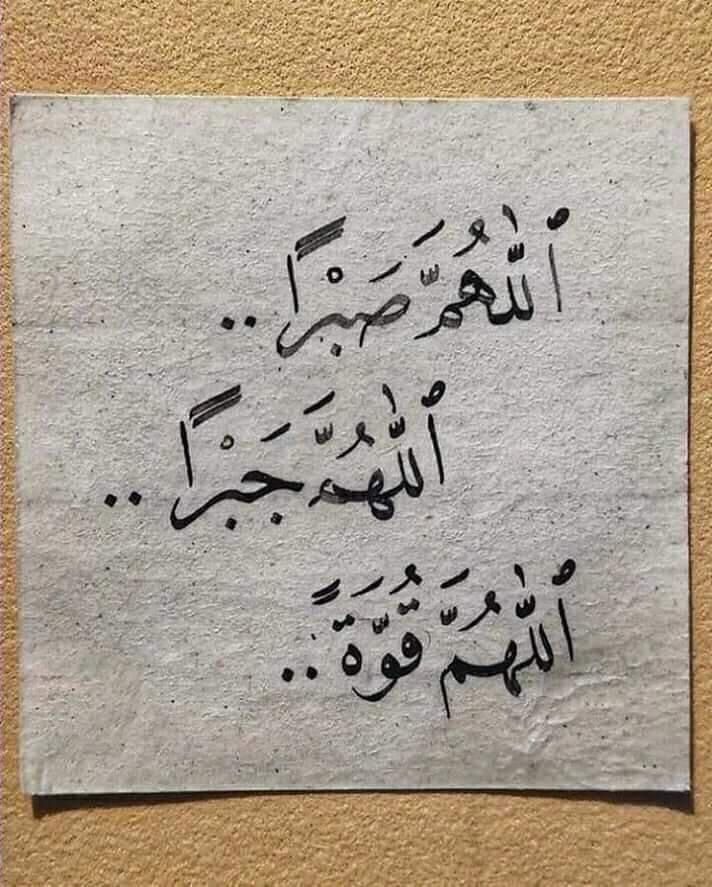 ٱللّٰهُمَّ صَبْرًا..
ٱللّٰهُمَّ جَبْرًا..
ٱللّٰهُمَّ قُوَّةً..